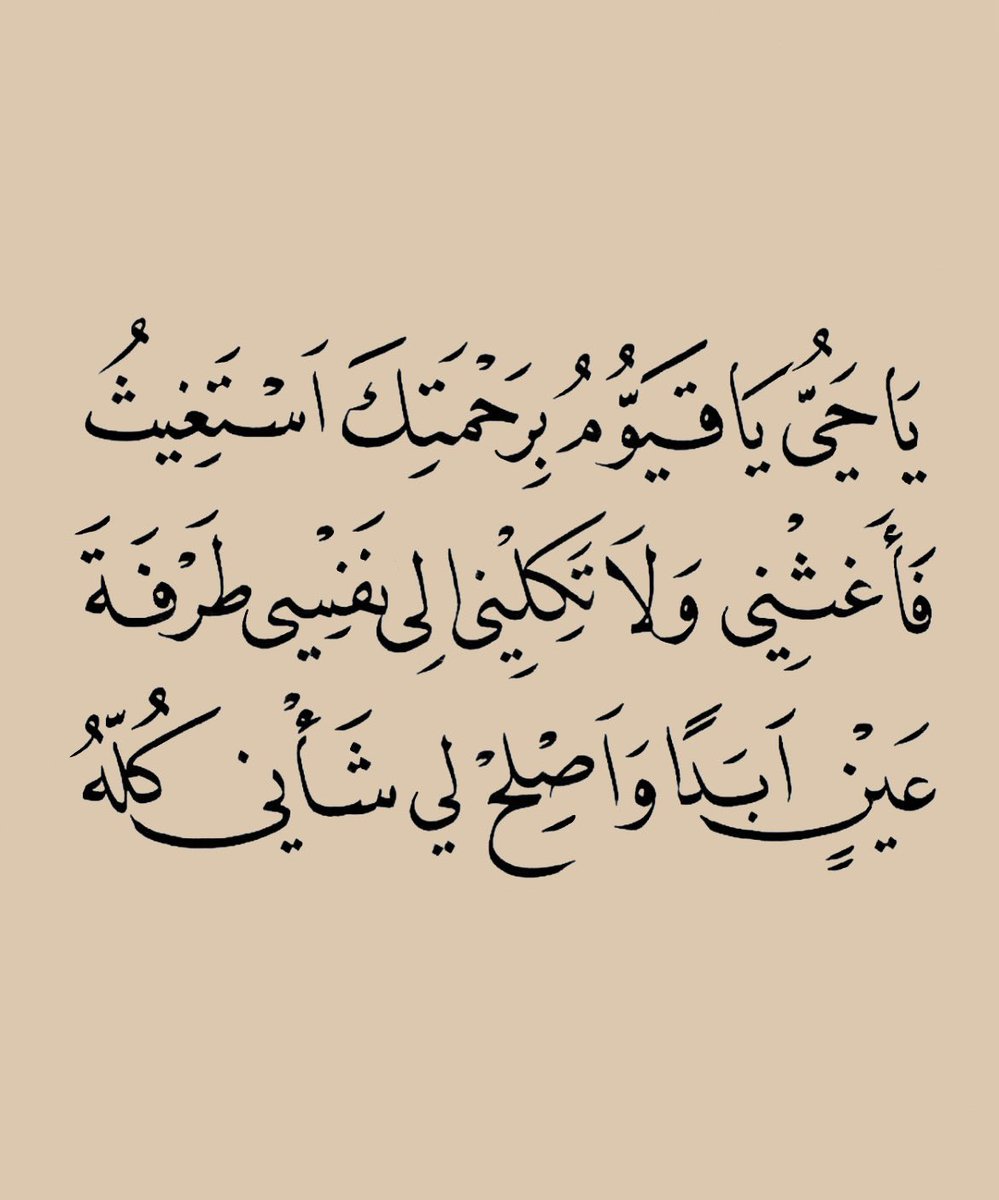 يَا حَيُّ يَا قَيُّوْمُ بِرَحْمَتِكَ اَسْتَغِيثُ
فَأَغْثِنِي وَلَا تَكِلْنِي اِلِى نَفْسِي طَرْفَةَ
عَيْنٍ اَبَدًا وَاَصْلِحْ لِي شَأْنِي كُلَّهُ